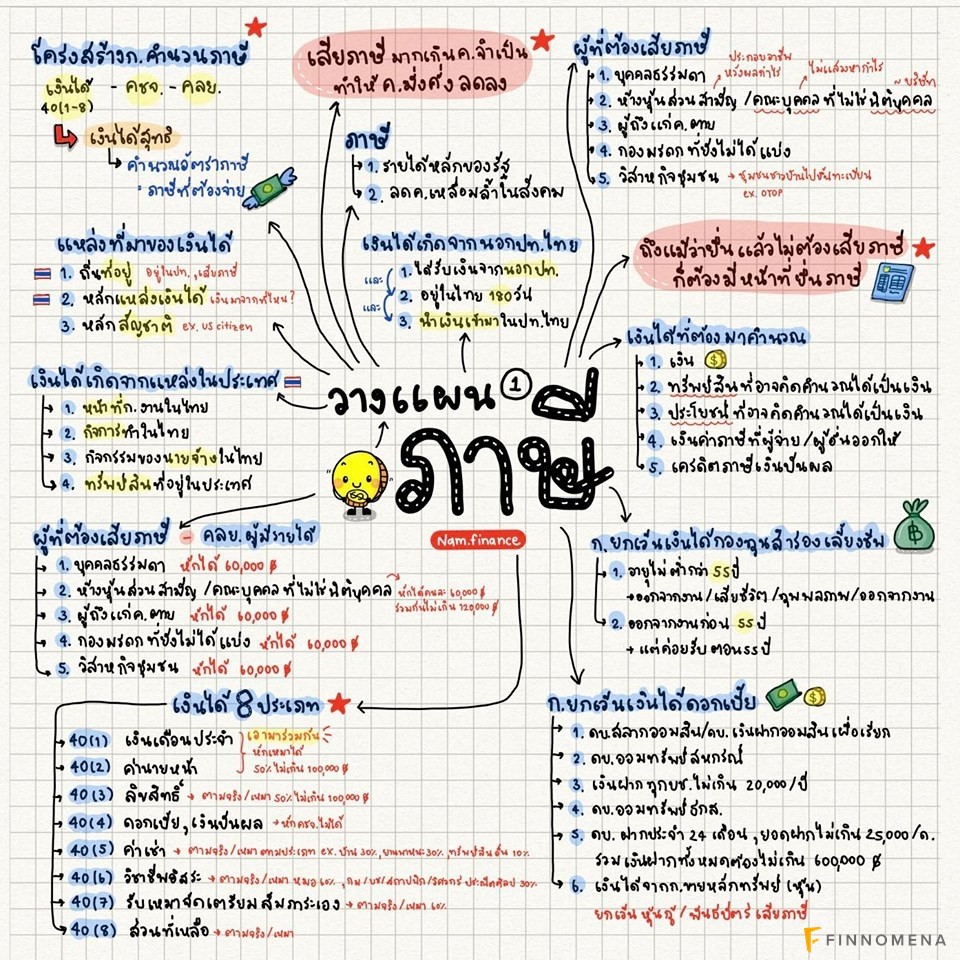 โครงสร้างก.คำนวนภาษี
เงินได้ - คชจ. - คลย.
40(1-8)
เงินได้สุทธิ
คำนวณอัตราภาษี
= ภาษีที่ต้องจ่าย
เสียภาษี มากเกินค.จำเป็น
ทำให้ ค.มั่งคั่ง ลดลง
ภาษี
1. รายได้หลักของรัฐ
2. ลดค.เหลื่อมล้ำในสังคม
ผู้ที่ต้องเสียภาษี
ประกอบอาชีพ
หวังผลกำไร
ไม่แสวงหากำไร
~ บริษัท
1. บุคคลธรรมดา
2. ห้างหุ้นส่วนสามัญ /คณะบุคคล ที่ไม่ใช่นิติบุคคล
3. ผู้ถึงแก่ค.ตาย
4. กองมรดก ที่ยังไม่ได้แบ่ง
5. วิสาหกิจชุมชน → ชุมชนชาวบ้านไปขึ้นทะเบียน
ex. OTOP
แหล่งที่มาของเงินได้
1. ถิ่นที่อยู่ อยู่ในปท.,เสียภาษี
2. หลักแหล่งเงินได้ เงินมาจากที่ไหน?
3. หลักสัญชาติ ex. US citizen
เงินได้เกิดจากนอกปท.ไทย
1. ได้รับเงินจากนอกปท.
และ
2. อยู่ในไทย 180 วัน
และ
3. นำเงินเข้ามาในปท.ไทย
ถึงแม้ว่ายื่น แล้วไม่ต้องเสียภาษี
ก็ต้องมีหน้าที่ยื่นภาษี
เงินได้ที่ต้องมาคำนวณ
1. เงิน
2. ทรัพย์สินที่อาจคิดคำนวณได้เป็นเงิน
3. ประโยชน์ที่อาจคิดคำนวณได้เป็นเงิน
4. เงินค่าภาษีที่ผู้จ่าย /ผู้อื่นออกให้
5. เครดิตภาษีเงินปันผล
เงินได้เกิดจากแหล่งในประเทศ
1. หน้าที่ก.งานในไทย
2. กิจการทำในไทย
3. กิจกรรมของนายจ้างในไทย
4. ทรัพย์สินที่อยู่ในประเทศ
วางแผน 1
ภาษี
Nam.finance
ผู้ที่ต้องเสียภาษี - คลย.ผู้มีรายได้
1. บุคคลธรรมดา หักได้ 60,000 ฿
2. ห้างหุ้นส่วนสามัญ /คณะบุคคล ที่ไม่ใช่นิติบุคคล หักได้คนละ 60,000 ฿
รวมกันไม่เกิน 120,000 ฿
3. ผู้ถึงแก่ค.ตาย หักได้ 60,000 ฿
4. กองมรดก ที่ยังไม่ได้แบ่ง หักได้ 60,000 ฿
5. วิสาหกิจชุมชน หักได้ 60,000 ฿
ก.ยกเว้นเงินได้กองทุนสำรองเลี้ยงชีพ
1. อายุไม่ต่ำกว่า 55 ปี
→ ออกจากงาน /เสียชีวิต /ทุพพลภาพ /ออกจากงาน
2. ออกจากงานก่อน 55 ปี
→ แต่ค่อยรับตอน 55 ปี
เงินได้ 8 ประเภท
40(1) เงินเดือนประจำ
40(2) ค่านายหน้า
เอามารวมกัน
หักเหมาได้
50% ไม่เกิน 100,000 ฿
40(3) ลิขสิทธิ์ → ตามจริง/เหมา 50% ไม่เกิน 100,000 ฿
40(4) ดอกเบี้ย,เงินปันผล → หักคชจ.ไม่ได้
40(5) ค่าเช่า → ตามจริง/เหมาตามประเภท ex. บ้าน 30%, ยานพาหนะ 30%, ทรัพย์สินอื่น 10%
40(6) วิชาชีพอิสระ → ตามจริง/เหมา หมอ 60%, กม/บช/สถาปนิก/วิศวกร ประณีตศิลป์ 30%
40(7) รับเหมาจัดเตรียมสัมภาระเอง → ตามจริง/เหมา 60%
40(8) ส่วนที่เหลือ → ตามจริง/เหมา
ก.ยกเว้นเงินได้ดอกเบี้ย
1. ดบ.สลากออมสิน/ดบ.เงินฝากออมสินเผื่อเรียก
2. ดบ.ออมทรัพย์สหกรณ์
3. เงินฝากทุกบช.ไม่เกิน 20,000/ปี
4. ดบ.ออมทรัพย์ธกส.
5. ดบ. ฝากประจำ 24 เดือน ,ยอดฝากไม่เกิน 25,000/ด.
รวมเงินฝากทั้งหมดต้องไม่เกิน 600,000 ฿
6. เงินได้จากก.ขายหลักทรัพย์ (หุ้น)
ยกเว้น หุ้นกู้ / พันธบัตร เสียภาษี
FINNOMENA